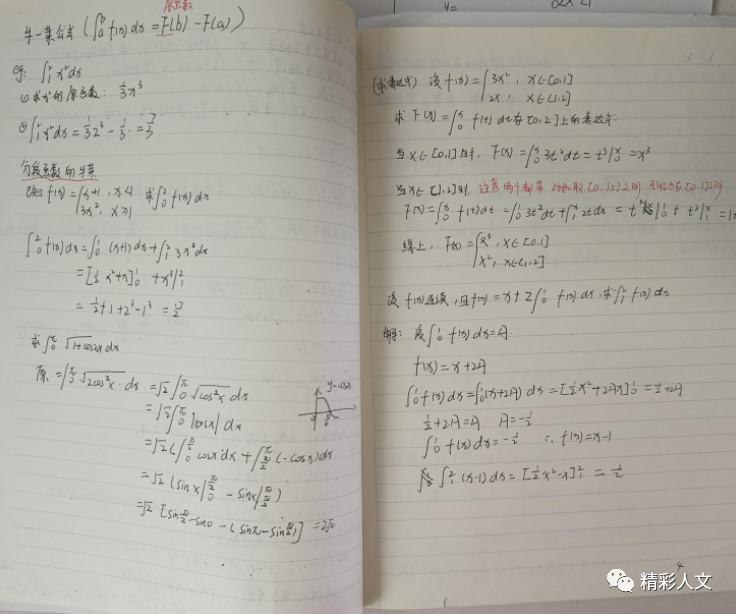 y=
原函数
牛-莱公式 (∫ₐᵇ f(x)dx = F(b) - F(a))
例: ∫₁² x²dx
①求x²的原函数: ⅓x³
②∫₁² x²dx = ⅓2³ - ⅓ = 7/3
分段函数的牛莱
已知 f(x) = { x+1, x<1 求∫₀² f(x)dx
3x², x≥1
∫₀² f(x)dx = ∫₀¹ (x+1)dx + ∫₁² 3x²dx
= [½x²+x]₀¹ + x³|₁²
= ½+1+2³-1³ = 17/2
求∫₀^π √(1+cos2x) dx
原 = ∫₀^π √(2cos²x) dx = √2 ∫₀^π √(cos²x) dx
y=cosx
= √2 ∫₀^π |cosx| dx
= √2 (∫₀^(π/2) cosx dx + ∫_(π/2)^π (-cosx)dx)
= √2 (sinx|₀^(π/2) - sinx|_(π/2)^π)
= √2 [sin π/2 - sin0 - (sinπ - sin π/2)] = 2√2
(求表达式) 设 f(x) = { 3x², x∈[0,1]
2x, x∈(1,2]
求 F(x) = ∫₀ˣ f(t)dt 在[0,2]上的表达式
当x∈[0,1]时, F(x) = ∫₀ˣ 3t²dt = t³|₀ˣ = x³
当x∈[1,2]时
F(x) = ∫₀ˣ f(t)dt = ∫₀¹ 3t²dt + ∫₁ˣ 2tdt = t³|₀¹ + t²|₁ˣ = 1+
综上, F(x) = { x³, x∈[0,1]
x², x∈(1,2]
设 f(x)连续, 且f(x) = x + 2∫₀¹ f(x)dx, 求∫₁² f(x)dx
解: 设∫₀¹ f(x)dx = A.
f(x) = x+2A
∫₀¹ f(x)dx = ∫₀¹ (x+2A)dx = [½x²+2Ax]₀¹ = ½+2A
½+2A = A A = -½
∫₀¹ f(x)dx = -½ ∴ f(x) = x-1
∫₁² (x-1)dx = [½x²-x]₁² = ½
4
精彩人文